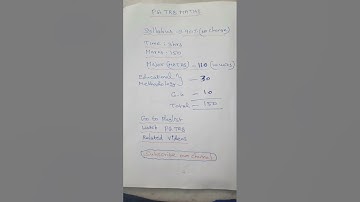 P.G TRB MATHS
Syllabus is not (no change)
Time : 3hrs
Marks : 150
Major (MATHS) - 110
Educational
Methodology } - 30
G.K - 10
Total - 150
Go to Playlist
Watch PG TRB
Related Videos
Subscribe our channel